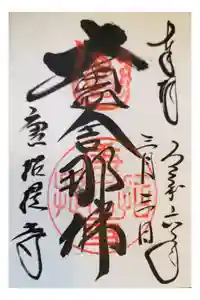 奉拝
令和六年
三月三日
盧舎那佛
唐招提寺